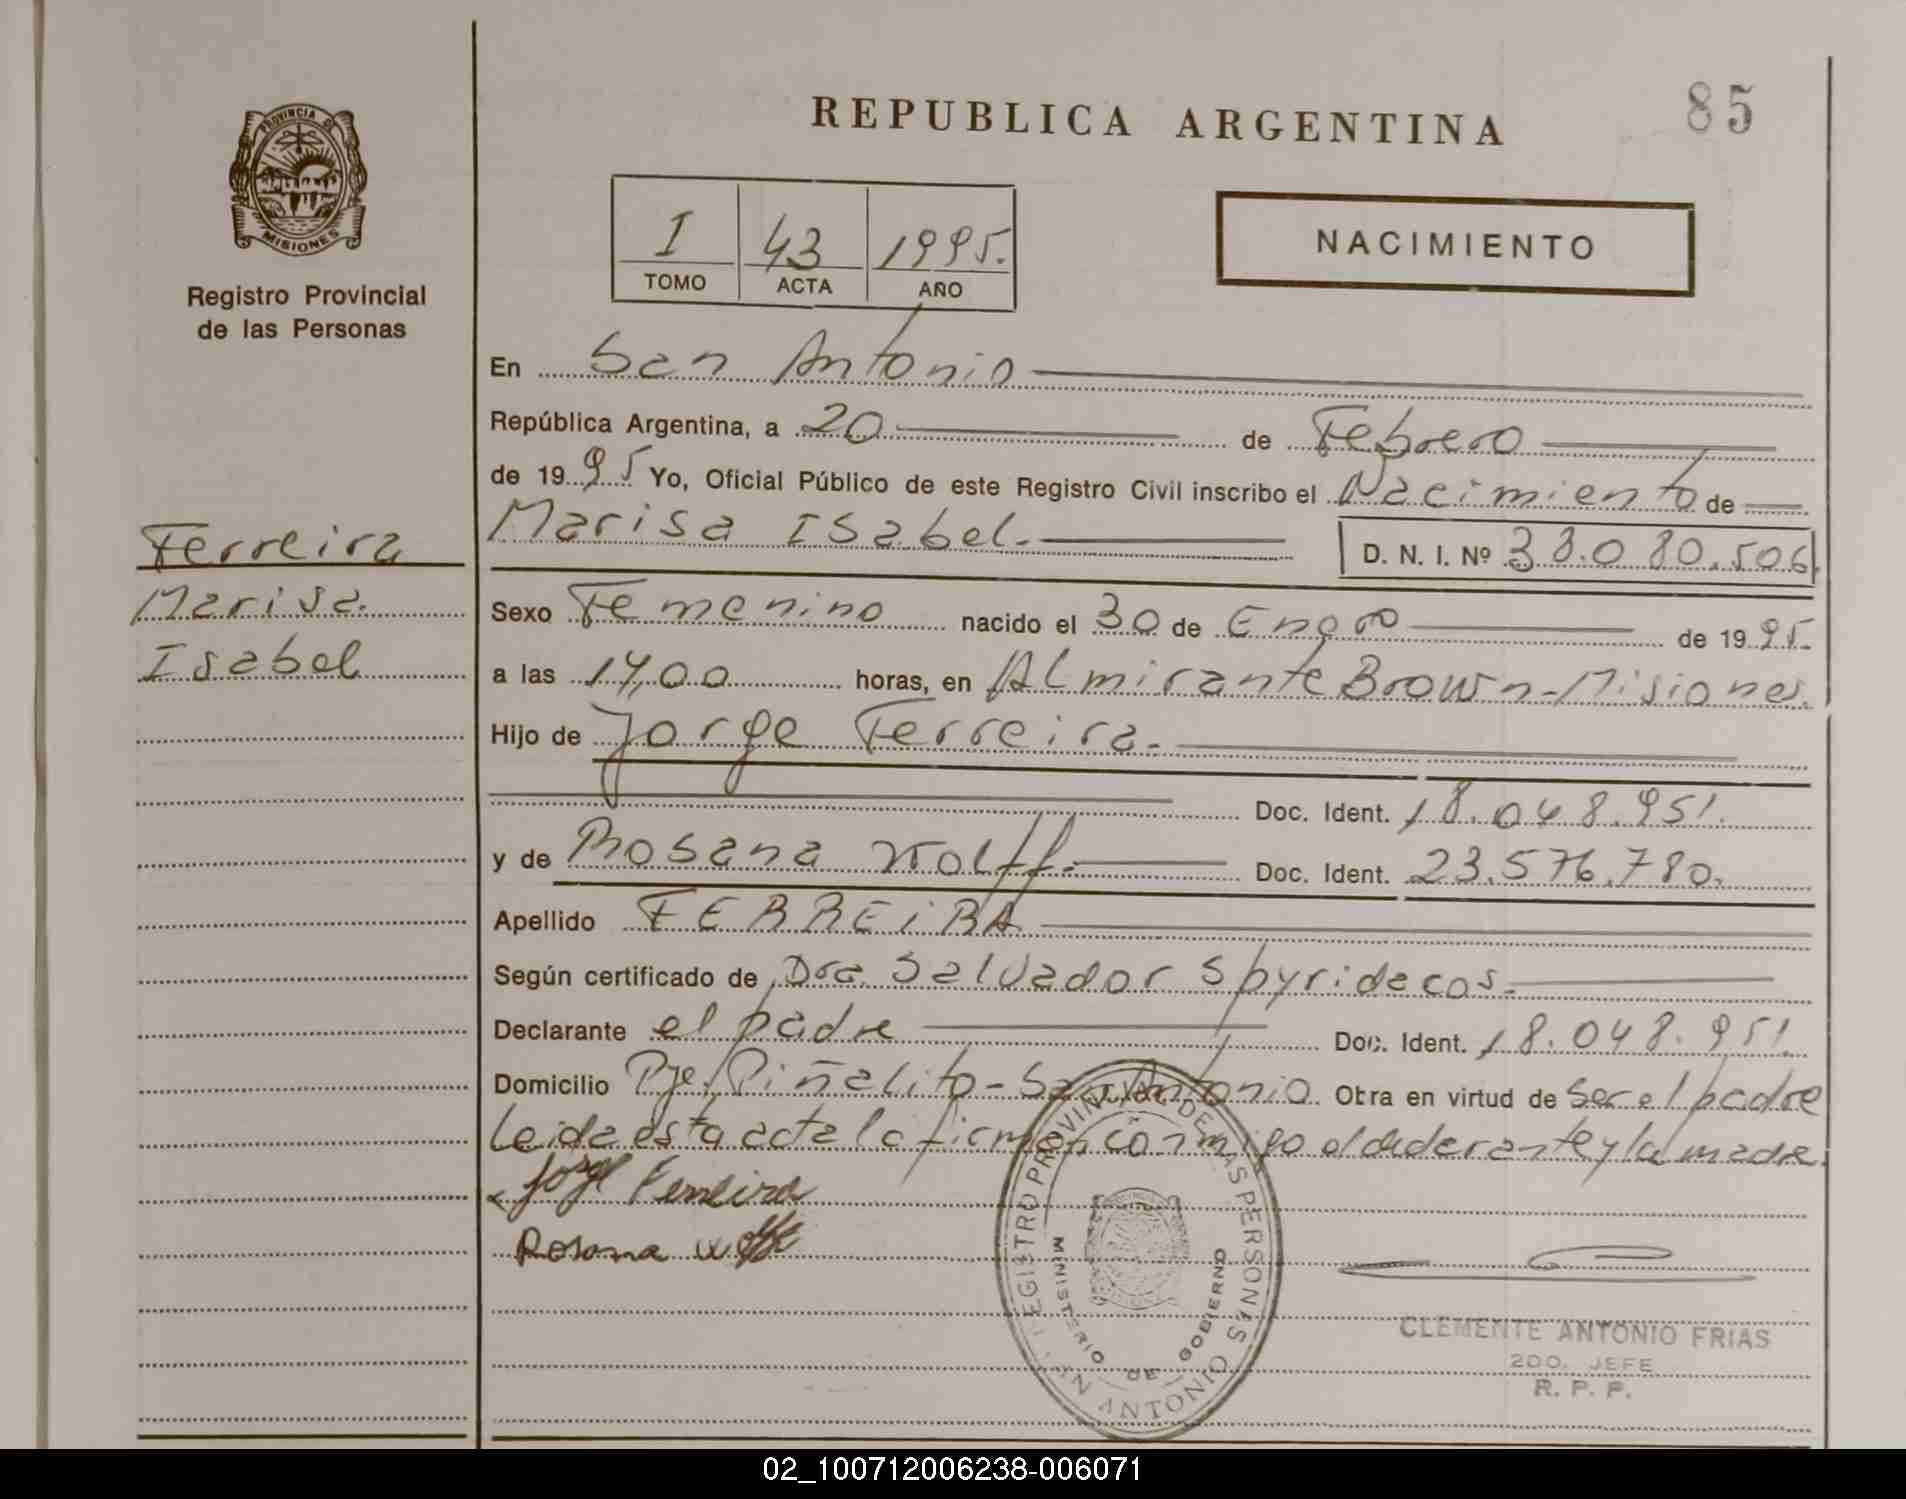 85
REPUBLICA ARGENTINA
PROVINCIA DE
MISIONES
Registro Provincial
de las Personas
I 43 1995.
TOMO ACTA AÑO
NACIMIENTO
En San Antonio
República Argentina, a 20 de Febrero
de 1995 Yo, Oficial Público de este Registro Civil inscribo el Nacimiento de
Marisa Isabel. D. N. I. Nº 38.080.506.
Ferreira
Marisa
Isabel
Sexo Femenino nacido el 30 de Enero de 1995.
a las 14,00 horas, en Almirante Brown-Misiones.
Hijo de Jorge Ferreira.
Doc. Ident. 18.048.951.
y de Rosana Wolff. Doc. Ident. 23.576.780.
Apellido FERREIRA
Según certificado de Dra. Salvador Spyridecos.
Declarante el padre Doc. Ident. 18.048.951.
Domicilio Pje. Piñalito-San Antonio Obra en virtud de ser el padre
Leida esta acta la firman conmigo el declarante y la madre.
Jorge Ferreira
Rosana Wolff
REGISTRO PROVINCIAL DE LAS PERSONAS
MINISTERIO DE GOBIERNO
SAN ANTONIO
CLEMENTE ANTONIO FRIAS
2DO. JEFE
R. P. P.
02_100712006238-006071